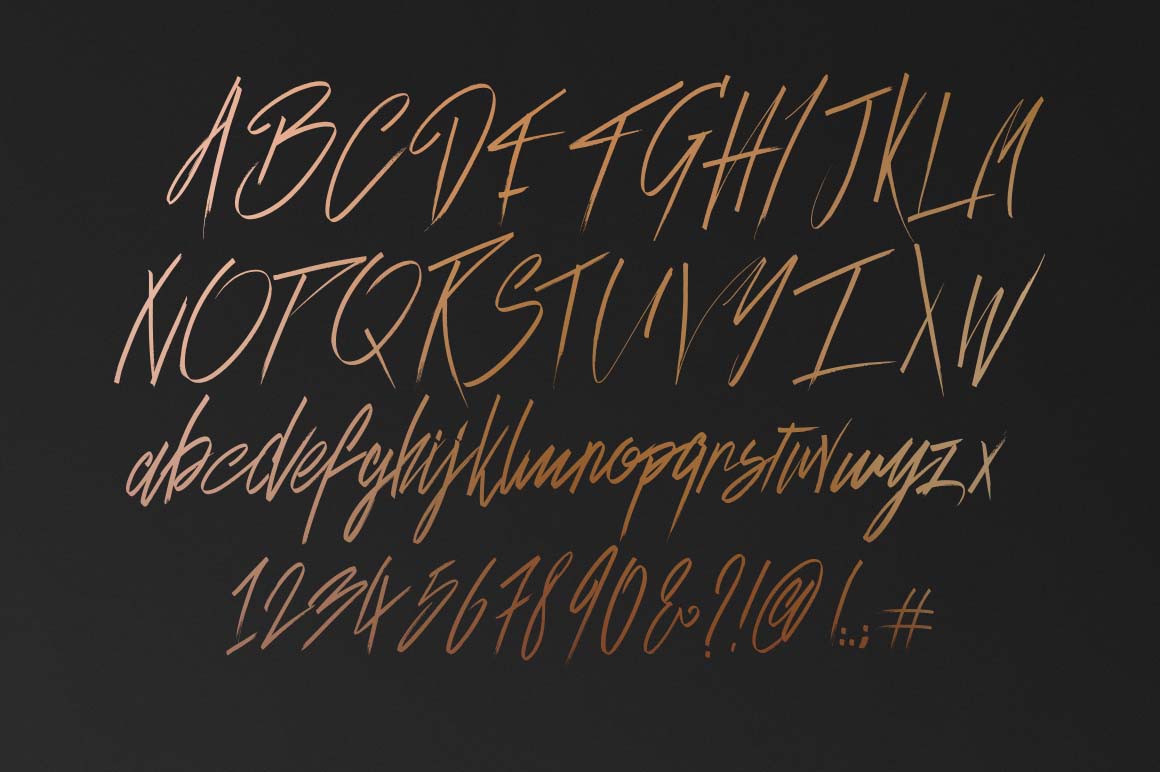 ABCDEFGHIJKLM
NOPQRSTUVYZXW
abcdefghijklmnopqrstuvwyzx
1234567890&?!@(.,:;#